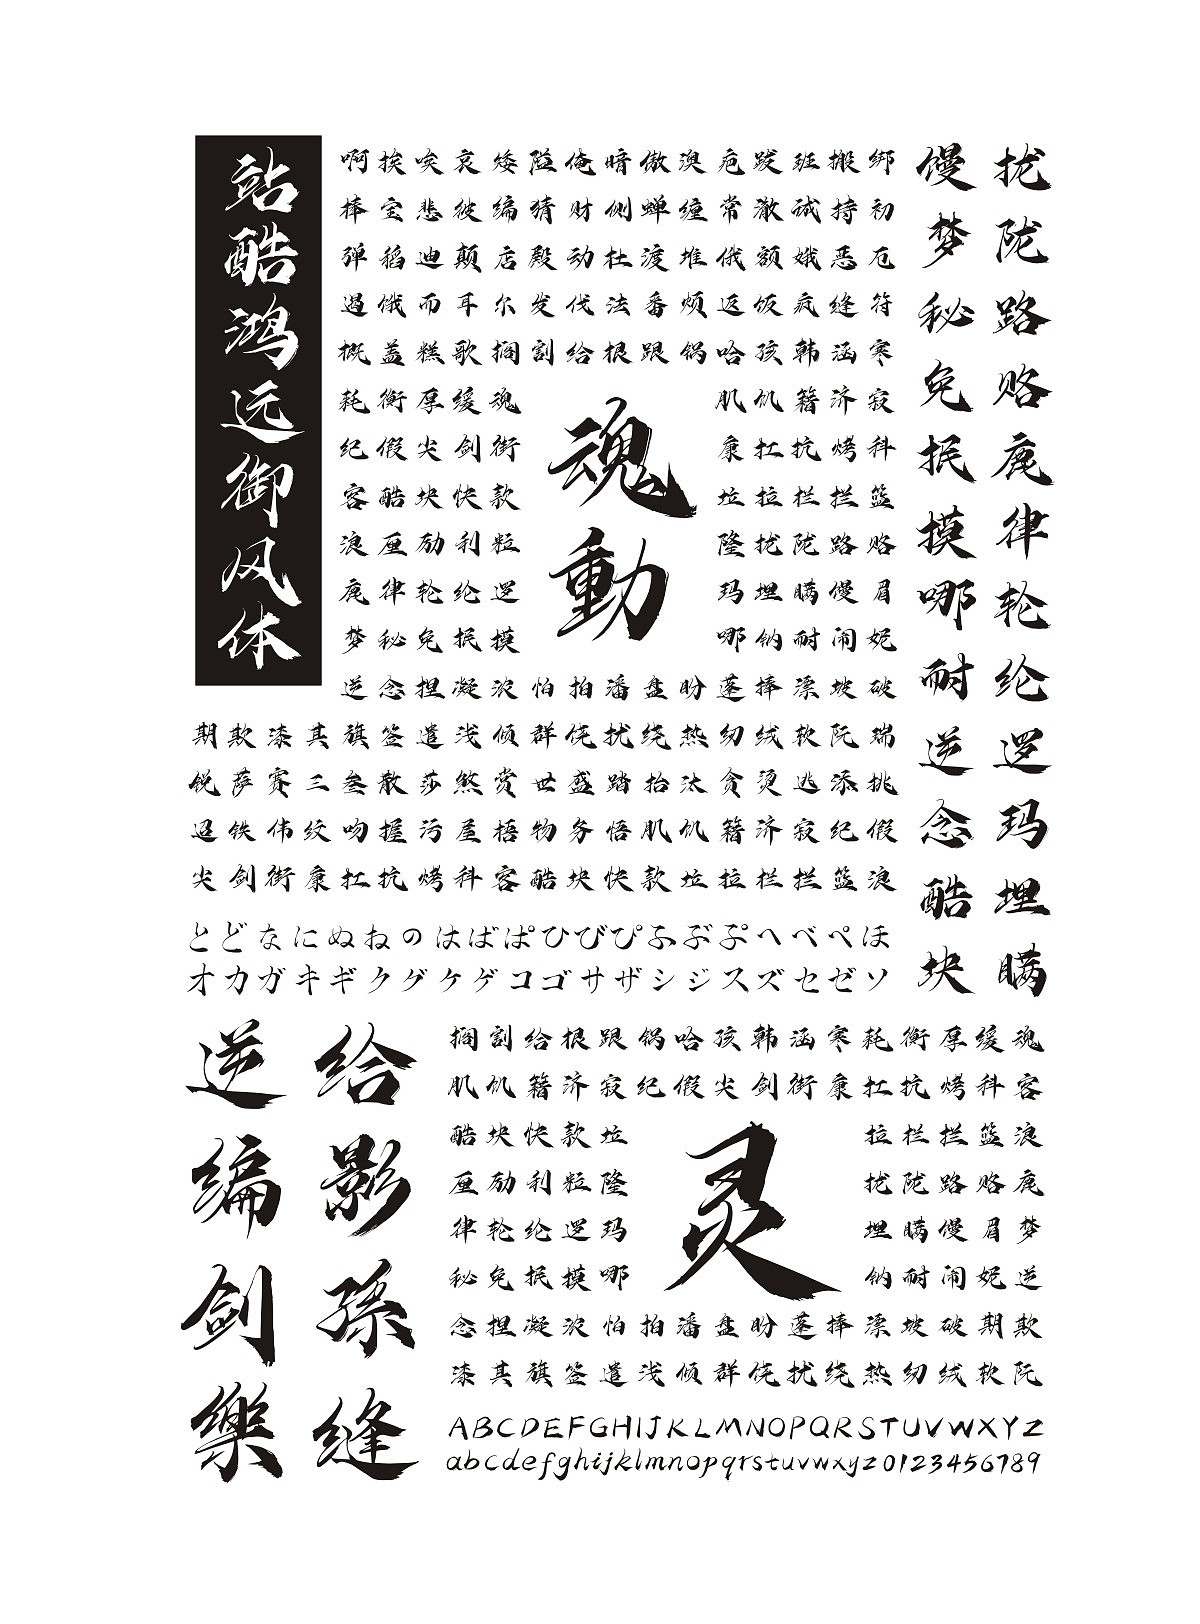 站酷鸿远御风体
啊挨唉哀矮隘俺暗傲澳疤跋班搬绑
捧宝悲彼编猜财侧蝉缠常澈诚持初
弹稻迪颠店殿动杜渡堆俄额娥恶厄
遏饿而耳尔发伐法番烦返饭疯缝符
概盖糕歌搁割给根跟锅哈孩韩涵寒
耗衡厚缓魂
肌饥籍济寂
纪假尖剑街
康扛抗烤科
客酷块快款
垃拉栏拦篮
浪厘励利粒
隆拢陇路赂
鹿律轮纶逻
玛埋瞒馒眉
梦秘免抿摸
哪钠耐闹妮
逆念捏凝浓怕拍潘盘盼蓬捧漂坡破
魂動
馒梦秘免抿摸哪耐逆念酷块
拢陇路赂鹿律轮纶逻玛埋瞒
期欺漆其旗签遣浅倾群侥扰绕热纫绒软阮瑞
锐萨赛三叁散莎煞赏世盛踏抬汰贪烫逃添挑
迢铁伟纹吻握污屋梧物务悟肌饥籍济寂纪假
尖剑街康扛抗烤科客酷块快款垃拉栏拦篮浪
とどなにぬねのはばぱひびぴふぶぷへべぺほ
オカガキギクグケゲコゴサザシジスズセゼソ
逆给
编影
剑孫
樂缝
搁割给根跟锅哈孩韩涵寒耗衡厚缓魂
肌饥籍济寂纪假尖剑街康扛抗烤科客
酷块快款垃
拉栏拦篮浪
厘励利粒隆
拢陇路赂鹿
律轮纶逻玛
埋瞒馒眉梦
秘免抿摸哪
钠耐闹妮逆
灵
念捏凝浓怕拍潘盘盼蓬捧漂坡破期欺
漆其旗签遣浅倾群侥扰绕热纫绒软阮
ABCDEFGHIJKLMNOPQRSTUVWXYZ
abcdefghijklmnopqrstuvwxyz0123456789